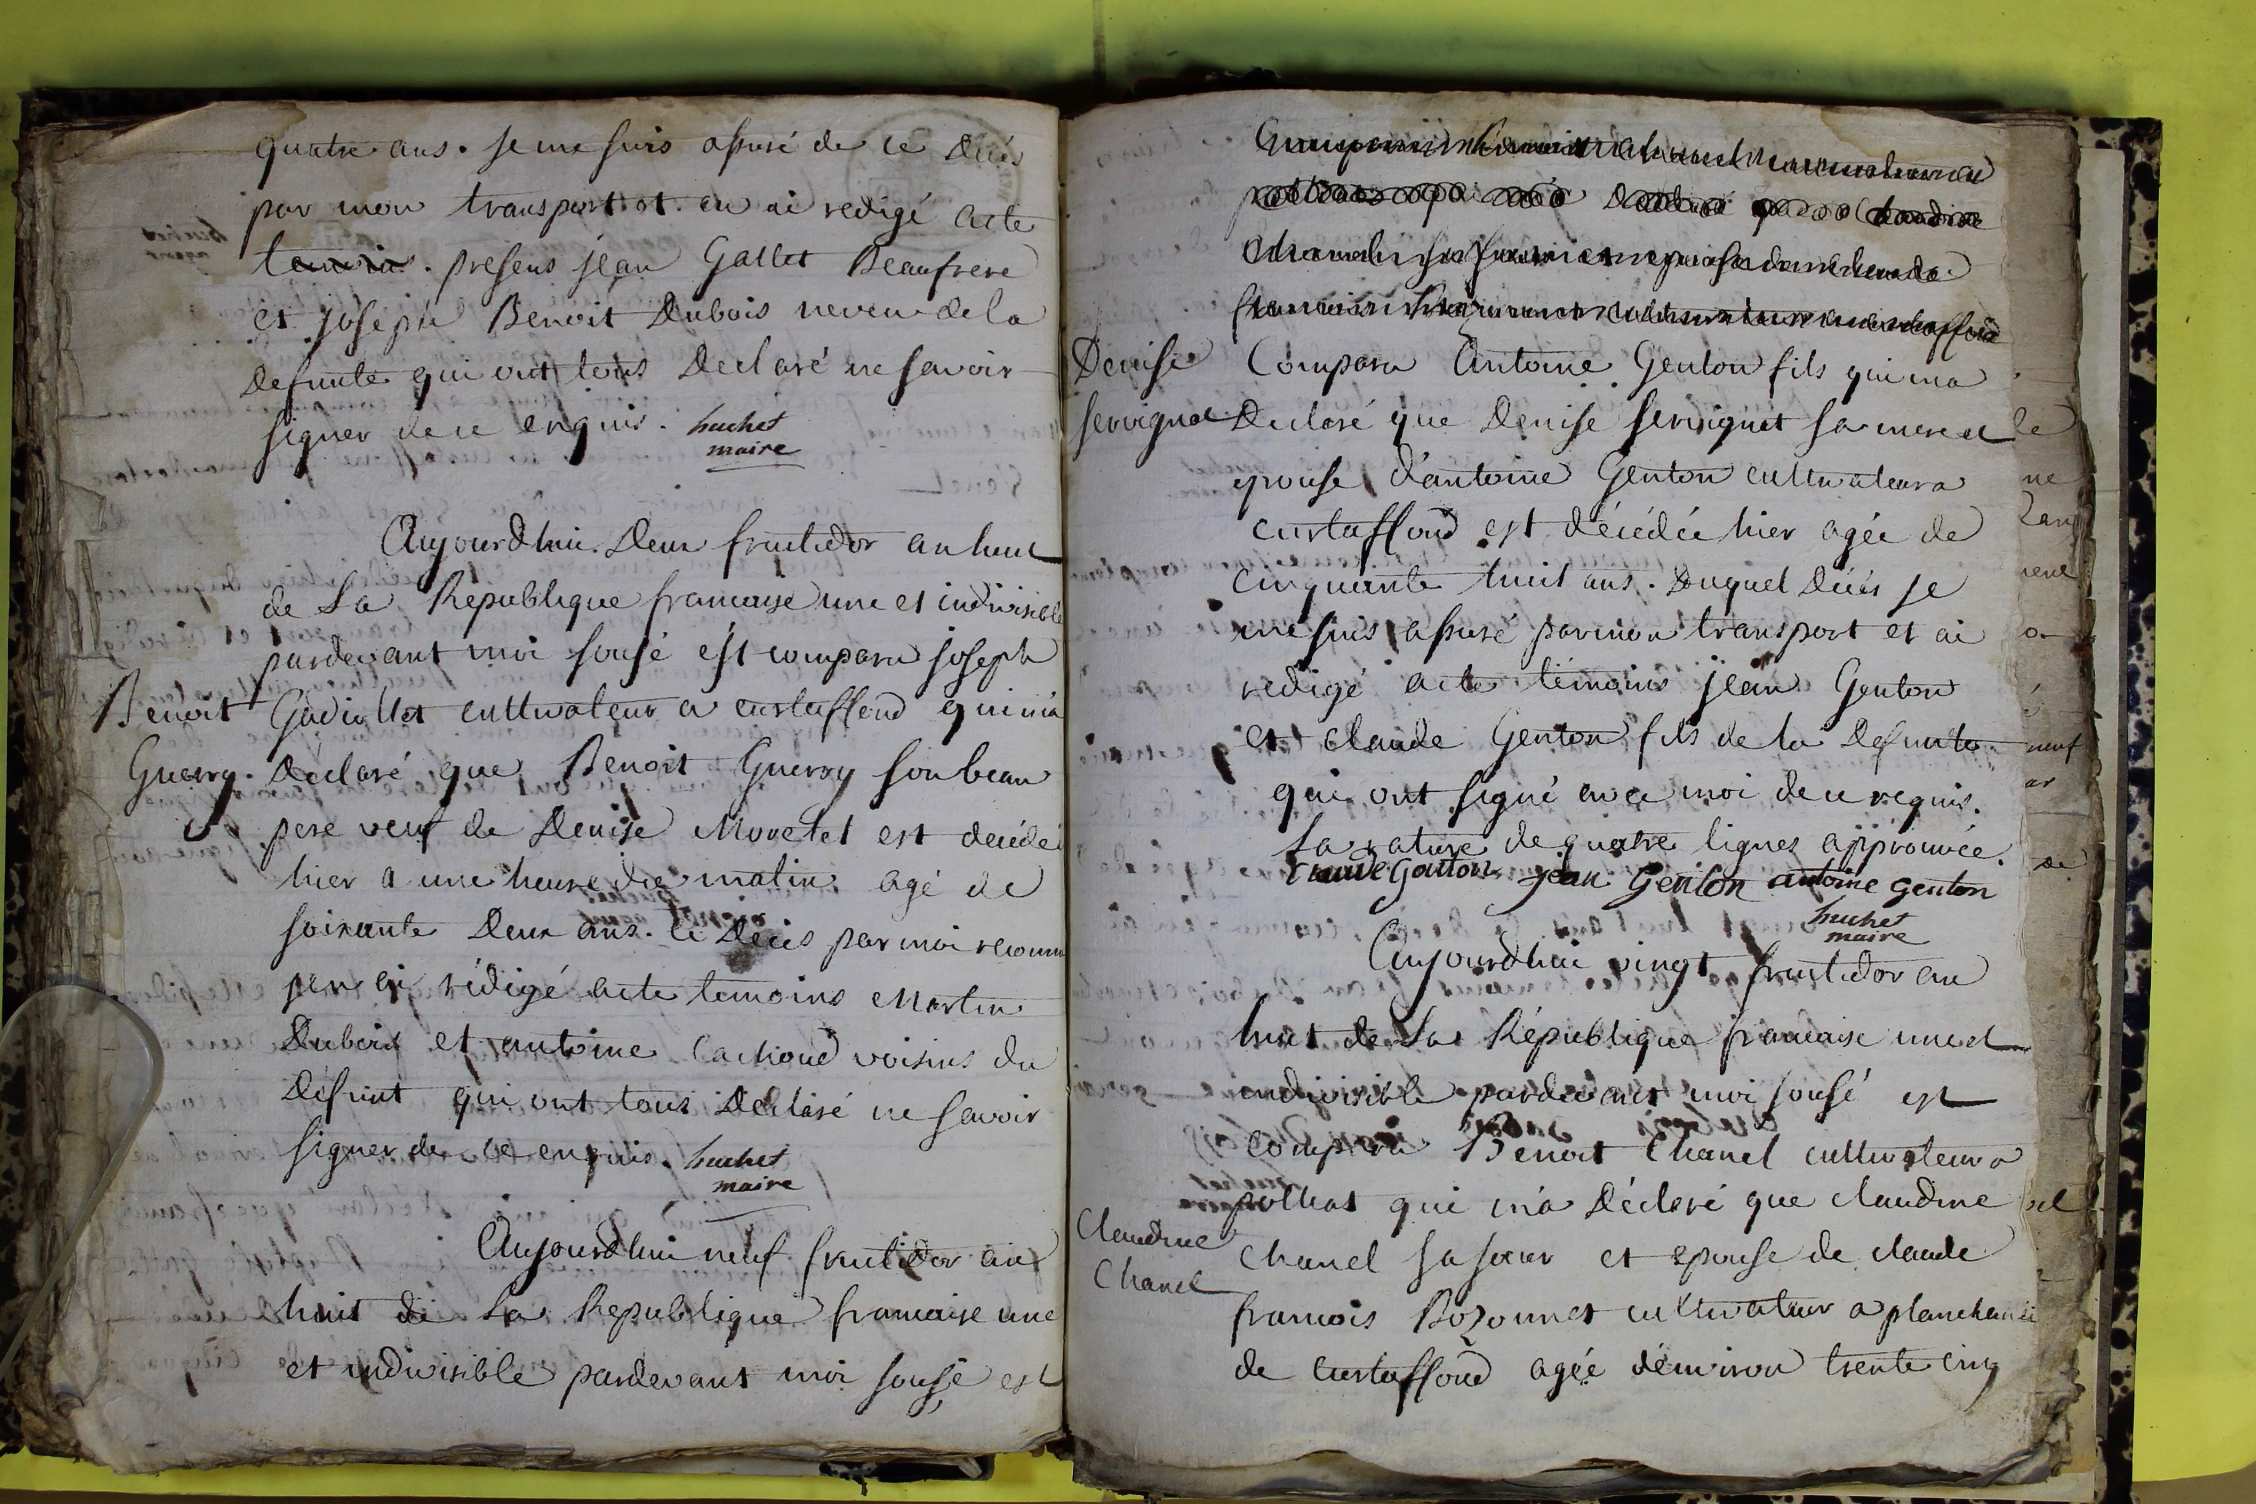 quatre ans. je me suis assuré de ce Décès
par mon transport et en ai redigé acte
temoins. presens jean Gallet Beaufrere
et joseph Benoit Dubois neveu de la
Defunte qui ont tous Declaré ne savoir
signer de ce enquis. huchet
maire
Aujourdhui Deux fructidor an huit
de La Republique francaise une et indivisible
pardevant moi sousé est comparu joseph
Benoit
Gadiollet cultivateur a curtaffond qui m'a
Guerry.
Déclaré que Benoit Guerry son beau
pere veuf de Denise Morelet est décédé
hier a une heure du matin agé de
soixante Deux ans. ce Décès par moi reconnu
j'en ai rédigé acte temoins Martin
Dubois et antoine Cachoud voisins du
Défunt qui ont tous Déclaré ne savoir
signer de ce enquis. huchet
maire
Aujourdhui neuf fructidor an
huit de La Republique francaise une
et indivisible pardevant moi sousé est
Denise
Comparu Antoine Genton fils qui m'a
servignet
Declaré que Denise servignet sa mere et
epouse d'antoine Genton cultivateur a
curtaffond est décédée hier agée de
cinquante huit ans. Duquel Décès je
me suis assuré par mon transport et ai
redigé acte témoins jean Genton
et claude Genton fils de la Defunte
qui ont signé avec moi de ce requis.
La rature de quatre lignes approuvée.
Claude Genton jean Genton antoine genton
huchet
maire
Aujourdhui vingt fructidor an
huit de La République francaise une et
indivisible pardevant moi sousé est
comparu Benoit Chanel cultivateur a
polliat qui m'a Déclaré que claudine
Claudine
Chanel
Chanel sa soeur et epouse de claude
francois Bozonnet cultivateur a
de Curtaffond agée d'environ trente cinq